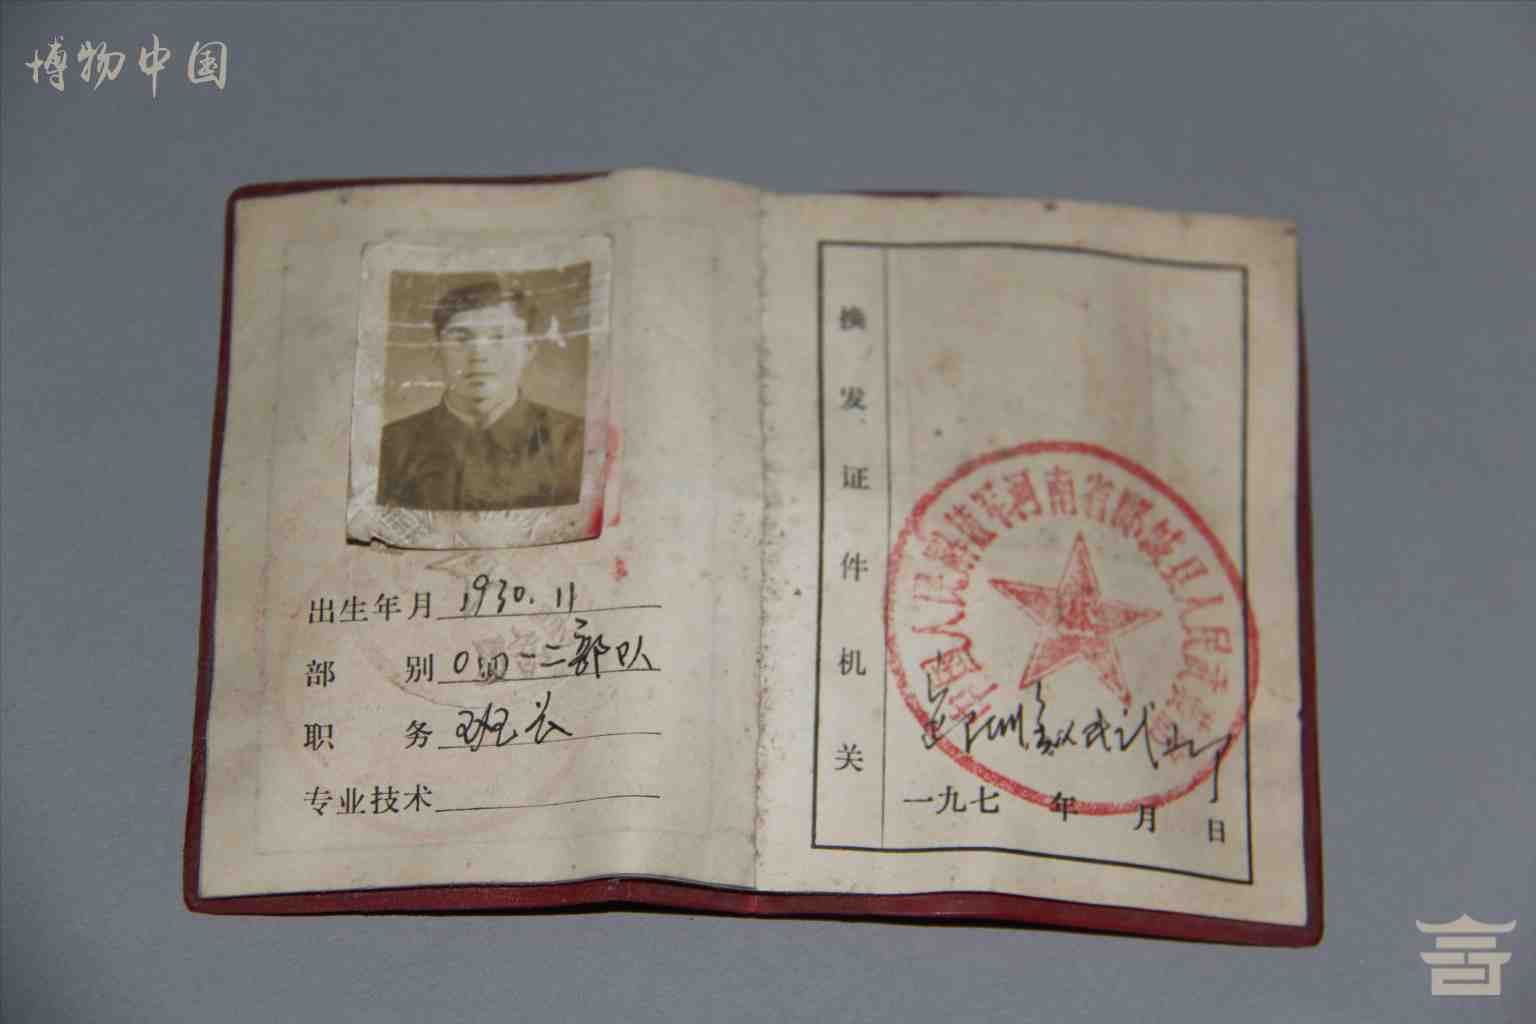 博物中国
出生年月 1930.11
部 别 0四一二部队
职 务 班长
专业技术
换发证件机关
中国人民解放军河南省郾城县人民武装部
一九七 年 月 日